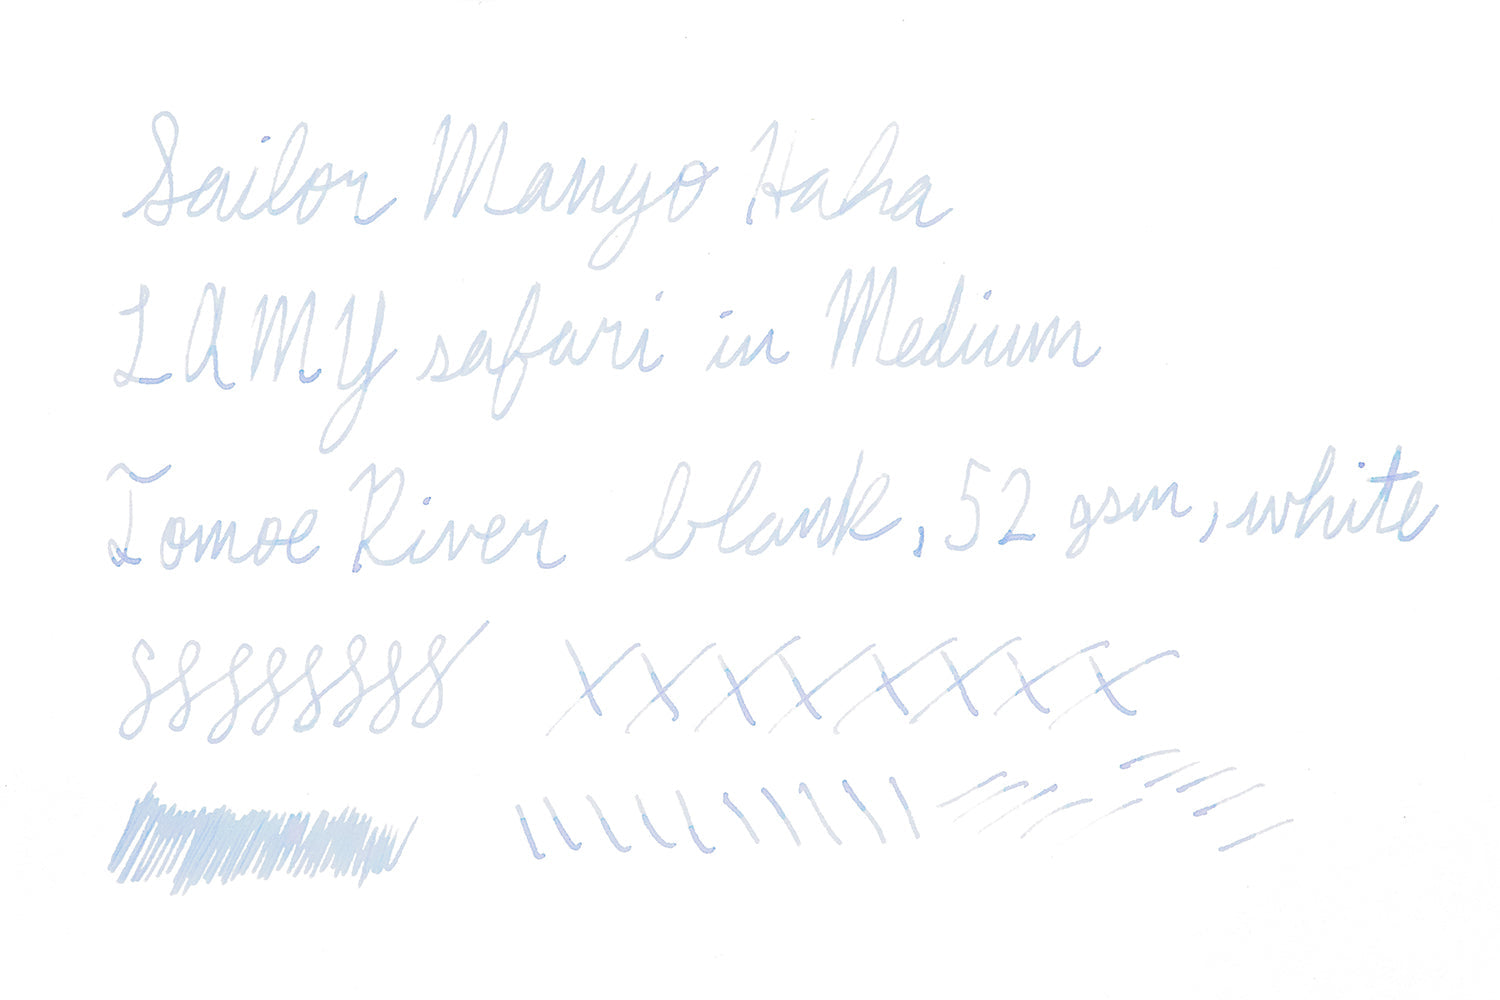 Sailor Manyo Haha
LAMY safari in Medium
Tomoe River blank, 52 gsm, white